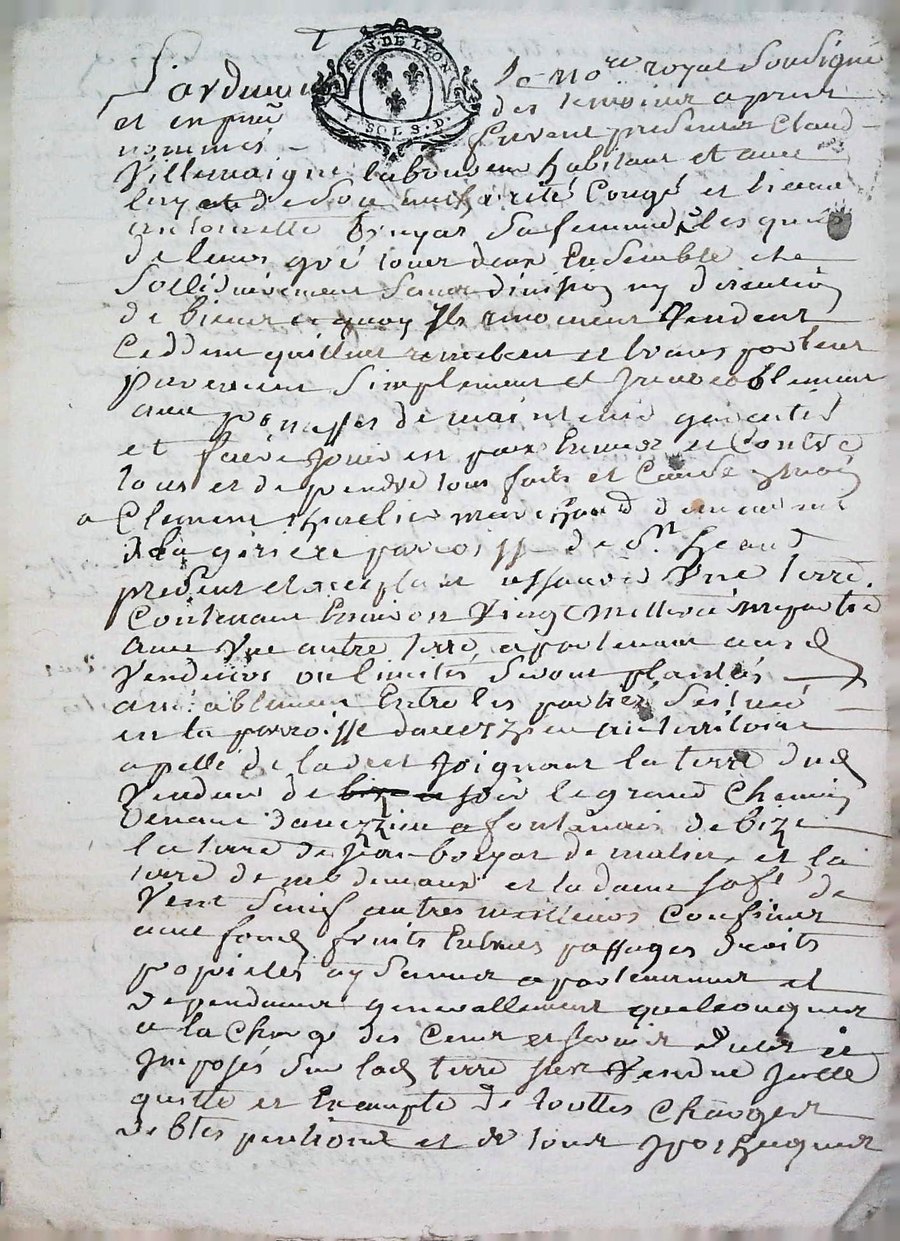 GEN. DE LYON
I. SOL S. D.
Pardevant Le No.re royal Soussigné
et en pnce des temoins apres
nommés furent presents Claude
Villemaigne laboureur habitant et avec
luy de Son authorité Congé et licence
antoinette boyar Sa femme lesquels
de leurs gré tous deux Ensemble et
Sollidairement Sans division ny discution
de biens a quoy Ils renoncent Vendent
Ceddent quittent remettent et transportent
purement Simplement et Irrevocablement
avec promesses de maintenir garentir
et faire Jouir en paix Envers et Contre
tous et deprendre tous faits et Cause
a Clement marchand
de la paroisse de St. heand
present et acceptant Une terre
Contenant Environ Vingt mettier
avec Une autre terre apartenant aux d
Vendeurs ou limites Seront plantés
amiablement Entre les parties Scitué
en la parroisse daveyzieu au territoire
apellé de Joignant la terre dud
Vendeur de soir le grand Chemin
Venant daveyzieu a fontanais de bize
la terre de Jean boyar de matin et la
terre de et la dame de
Vent Sauf autres meilleurs Confins
avec fonds fruits Entrées passages droits
proprietes aysances apartenances et
dependances generallement quelconques
a la Charge des Cens et servis dubs et
Imposés Sur lad terre Vendue Icelle
quitte et Exempte de touttes Charges
debtes pentions et de tous Ipotheques